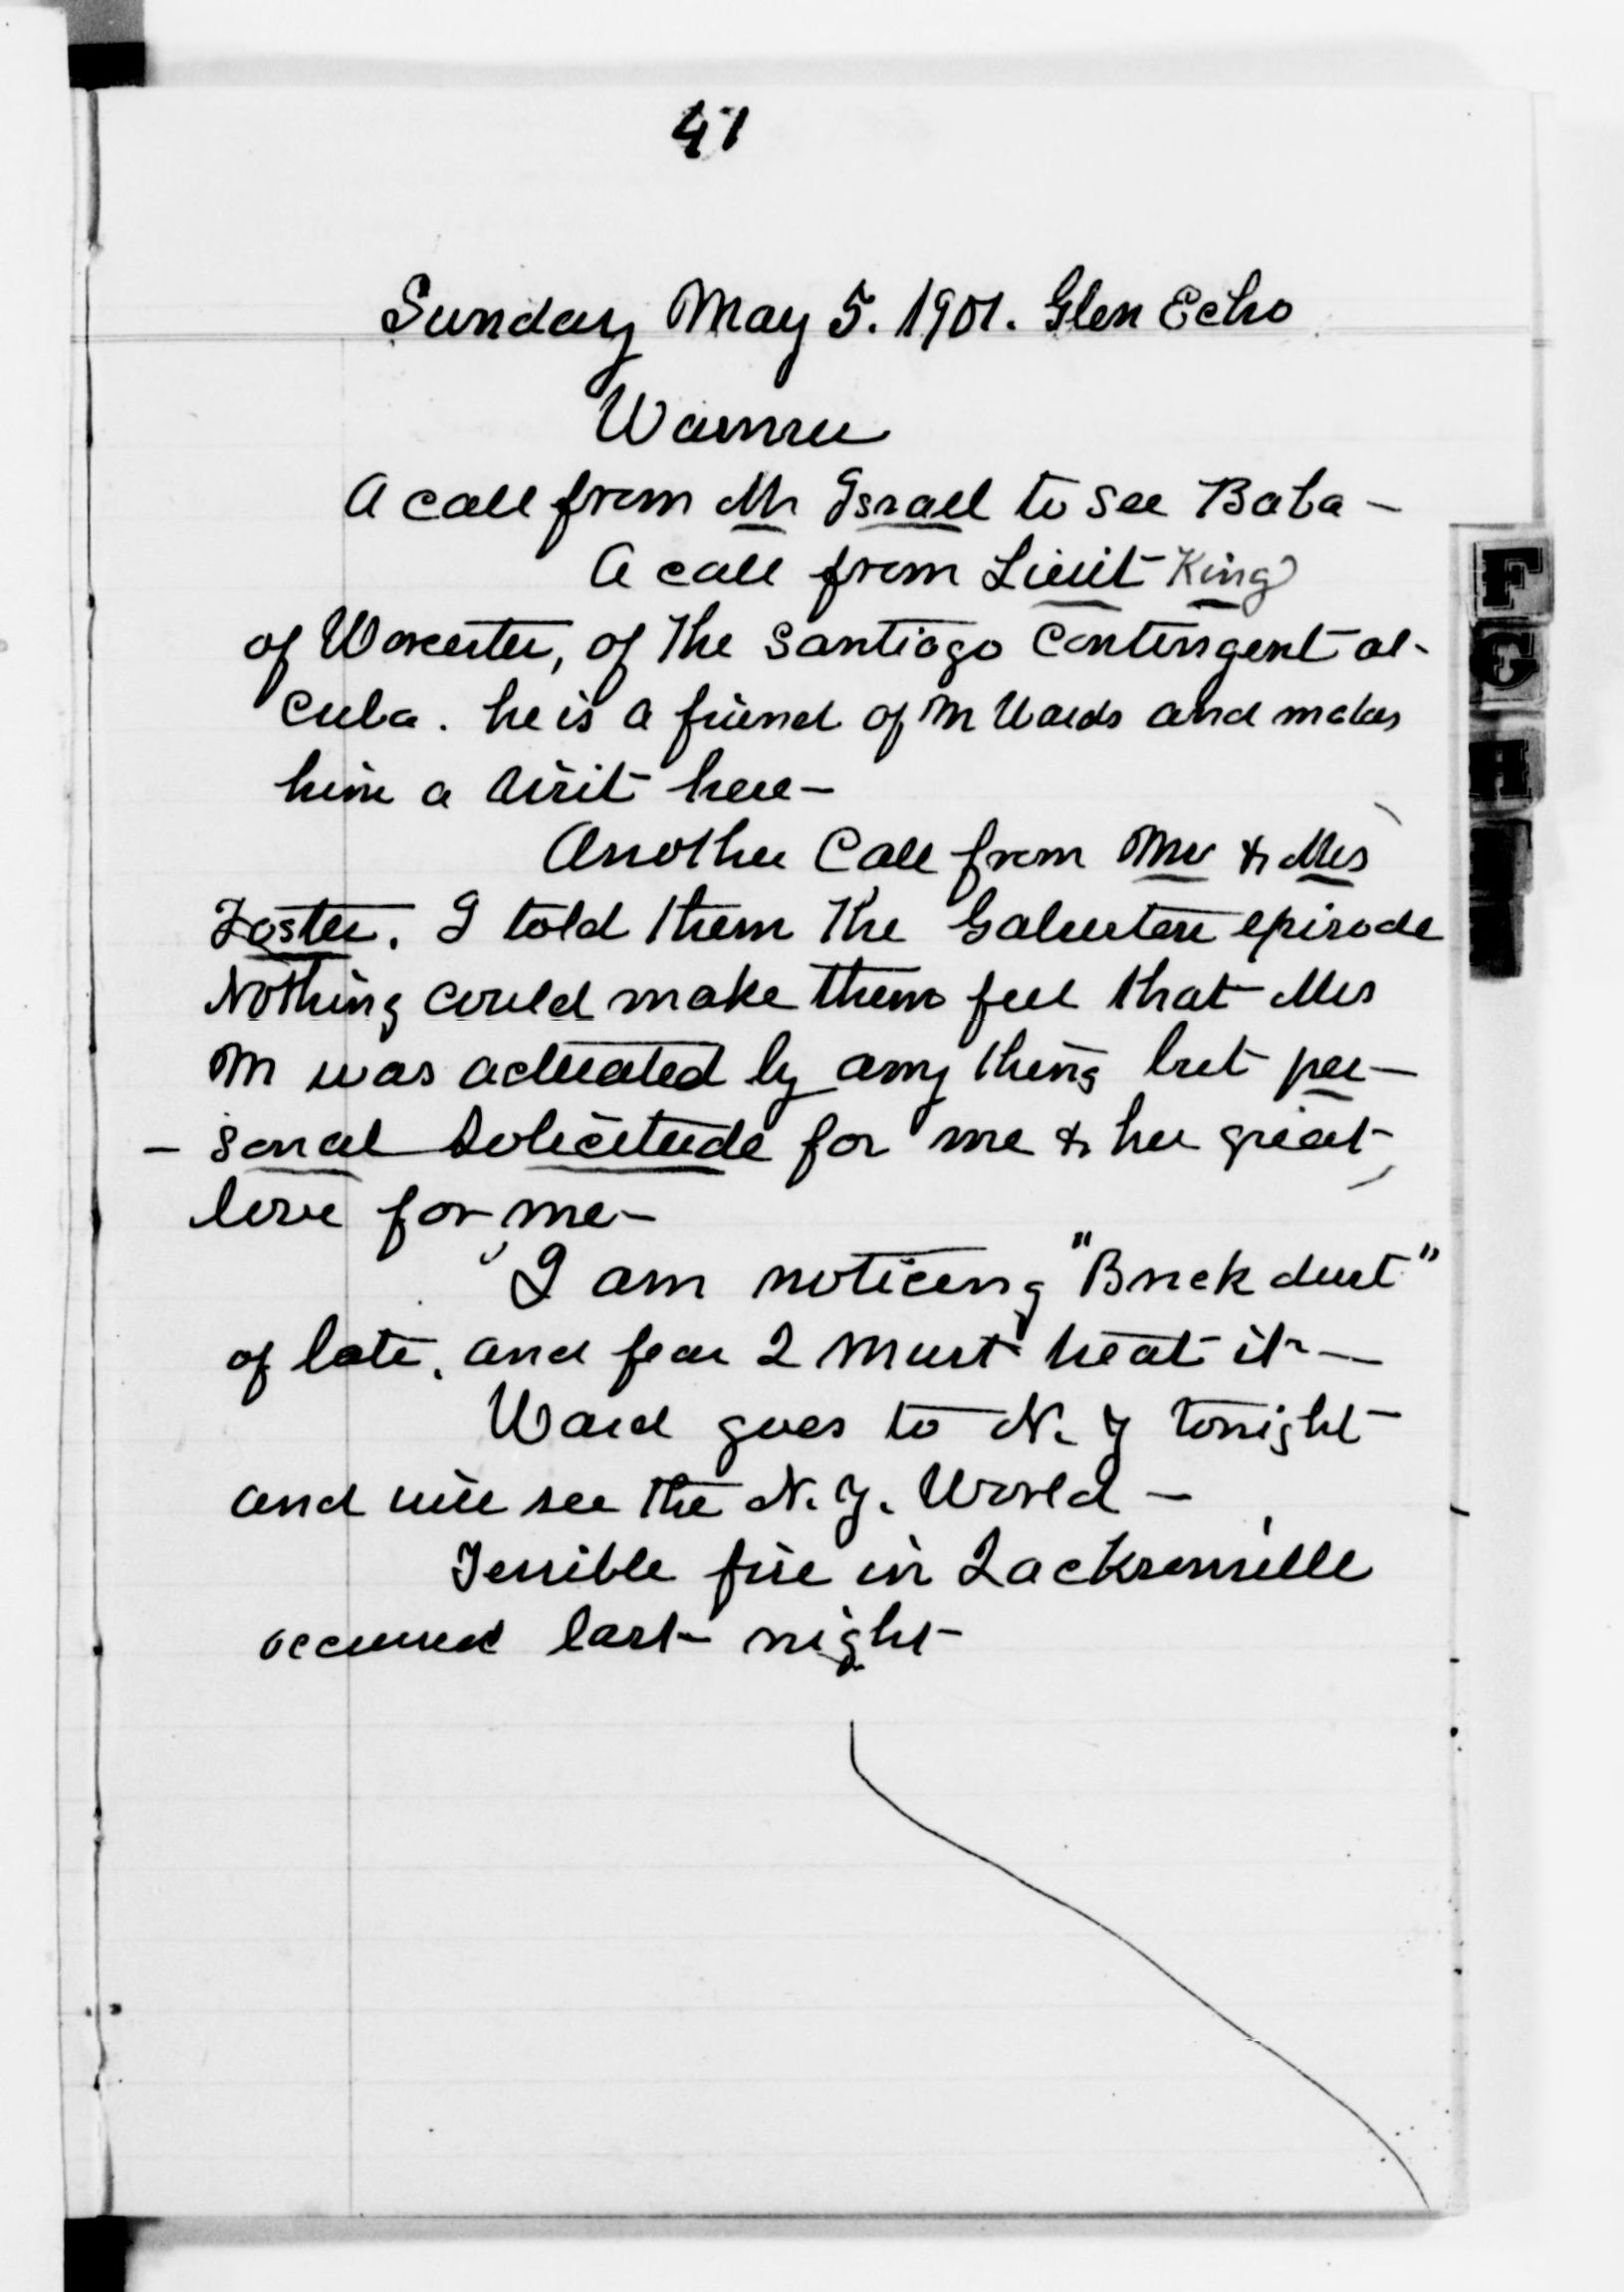 41
Sunday May 5. 1901. Glen Echo
Warmer
A call from Mr Israel to see Baba –
A call from Lieut King
of Worcester, of the Santiago Contingent at
Cuba. he is a friend of Mr Wards and makes
him a visit here –
Another Call from Mr & Mrs
Foster. I told them the Galveston episode
Nothing could make them feel that Mrs
M was actuated by any thing but per–
– sonal solicitude for me & her great
love for me –
I am noticing "Brick dust"
of late. and fear I must treat it –
Ward goes to N. Y tonight
and will see the N. Y. World –
Terrible fire in Jacksonville
occurred last night
F
G
H